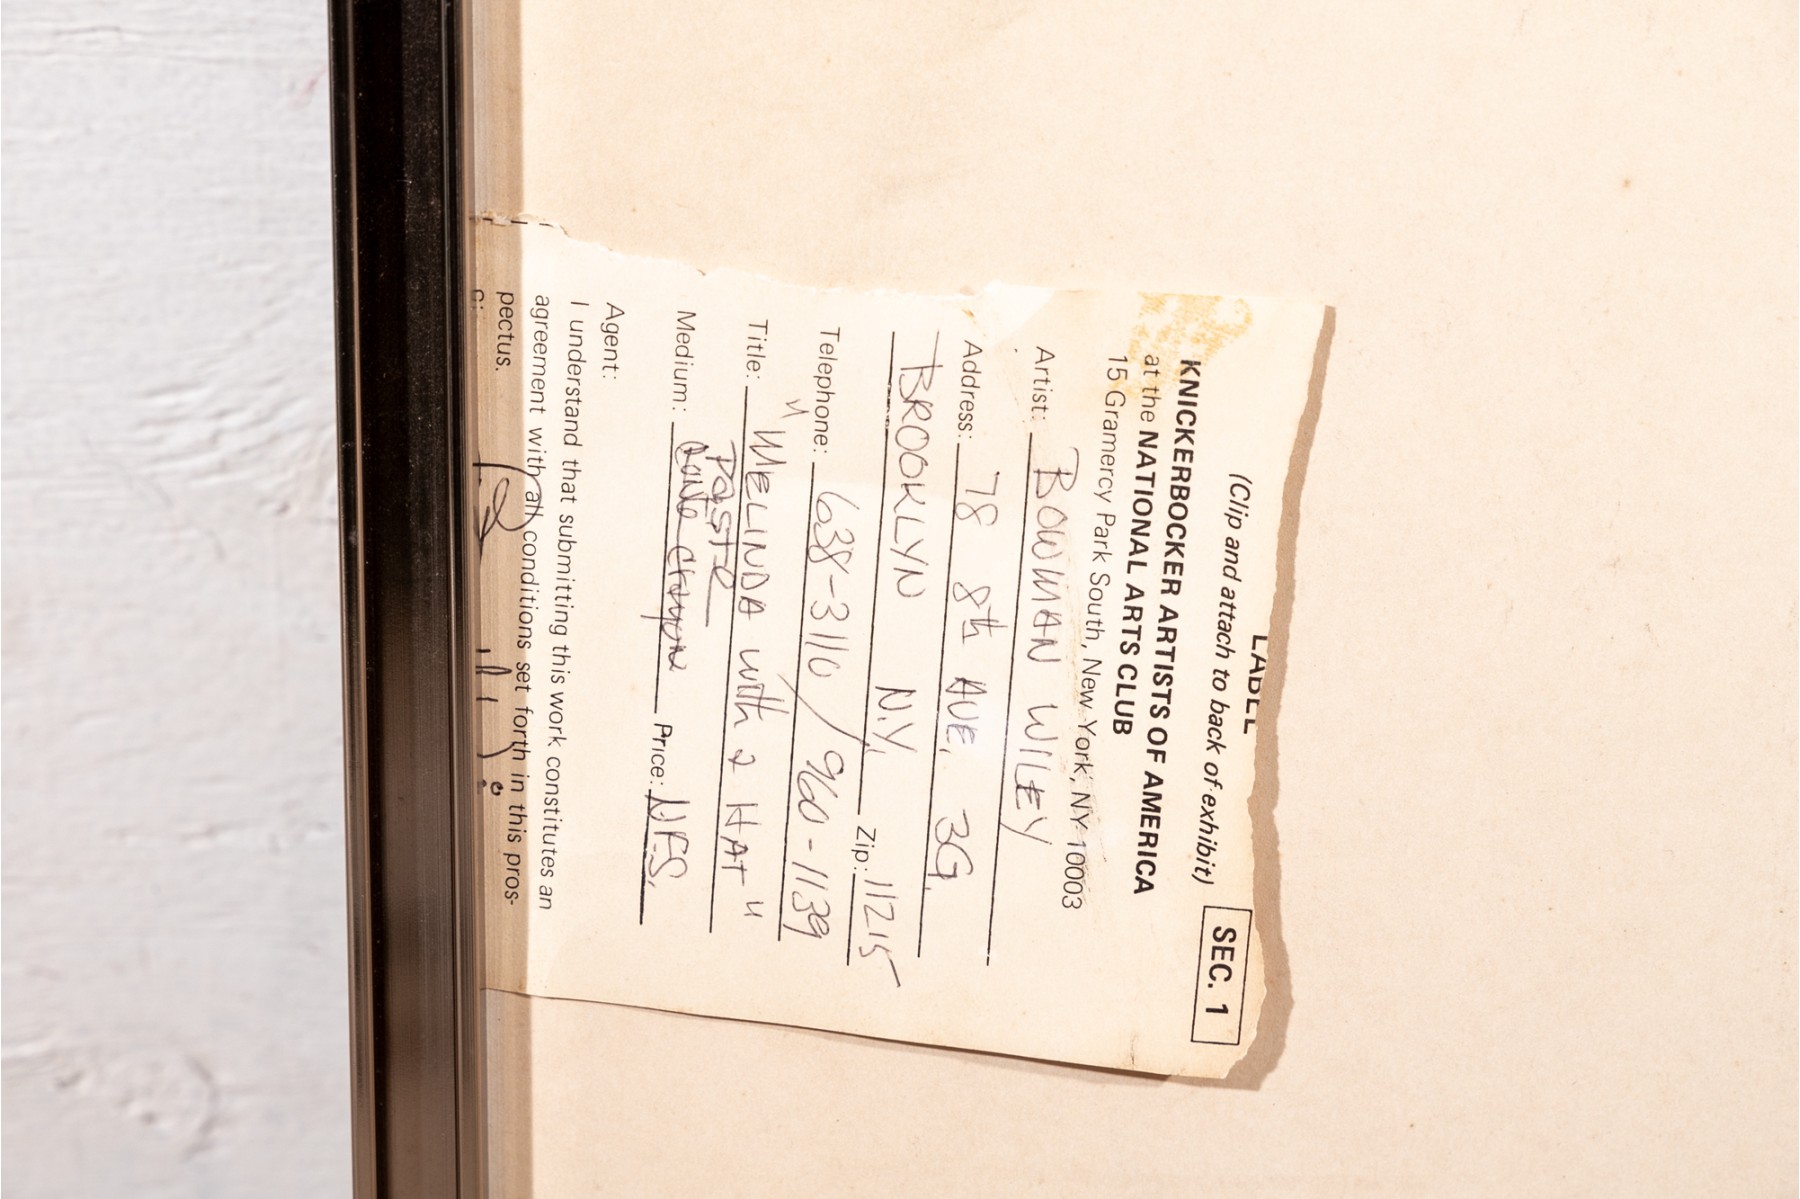 LABEL
(Clip and attach to back of exhibit) SEC. 1
KNICKERBOCKER ARTISTS OF AMERICA
at the NATIONAL ARTS CLUB
15 Gramercy Park South, New York, NY 10003
Artist: BOWMAN WILEY
Address: 78 8th AVE. 3G.
BROOKLYN N.Y. Zip: 11215
Telephone: 638-3110/960-1139
Title: "MELINDA with a HAT"
Pastel
Medium: Conte Crayon Price: NFS.
Agent:
I understand that submitting this work constitutes an
agreement with all conditions set forth in this pros-
pectus.